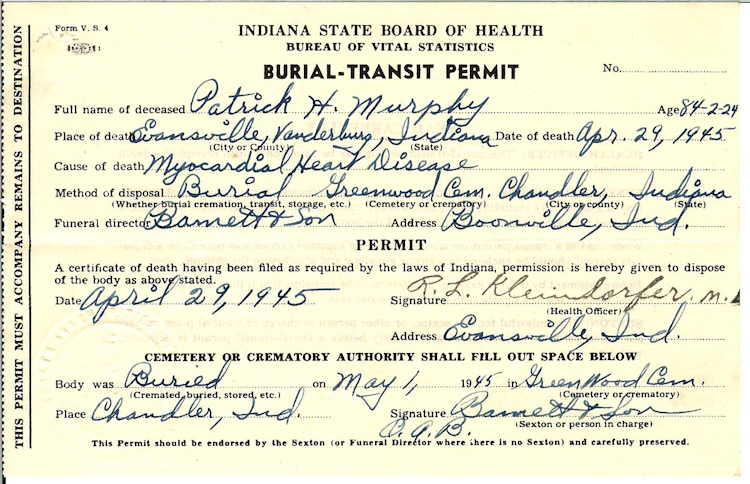 Form V. S. 4
INDIANA STATE BOARD OF HEALTH
BUREAU OF VITAL STATISTICS
BURIAL-TRANSIT PERMIT
No.
Full name of deceased Patrick H. Murphy Age 84-2-24
Place of death Evansville, Vanderburg, Indiana Date of death Apr. 29, 1945
(City or County) (State)
Cause of death Myocardial Heart Disease
Method of disposal Burial Greenwood Cem. Chandler, Indiana
(Whether burial cremation, transit, storage, etc.) (Cemetery or crematory) (City or county) (State)
Funeral director Barnett & Son Address Boonville, Ind.
PERMIT
A certificate of death having been filed as required by the laws of Indiana, permission is hereby given to dispose
of the body as above stated.
Date April 29, 1945 Signature R. L. Kleindorfer, M.
(Health Officer)
Address Evansville, Ind.
CEMETERY OR CREMATORY AUTHORITY SHALL FILL OUT SPACE BELOW
Body was Buried on May 1, 1945 in GreenWood Cem.
(Cremated, buried, stored, etc.) (Cemetery or crematory)
Place Chandler, Ind. Signature Barnett & Son
(Sexton or person in charge)
C. A. B.
This Permit should be endorsed by the Sexton (or Funeral Director where there is no Sexton) and carefully preserved.
THIS PERMIT MUST ACCOMPANY REMAINS TO DESTINATION